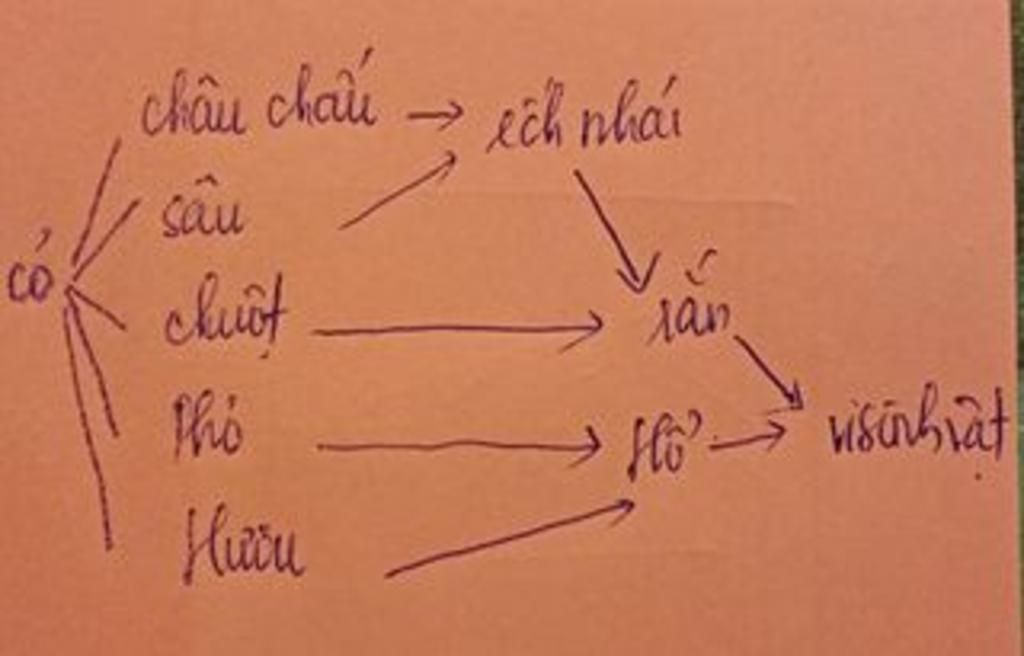 châu chấu → ếch nhái
sâu
cỏ
chuột → rắn
Thỏ → Hổ → vi sinh vật
Hươu